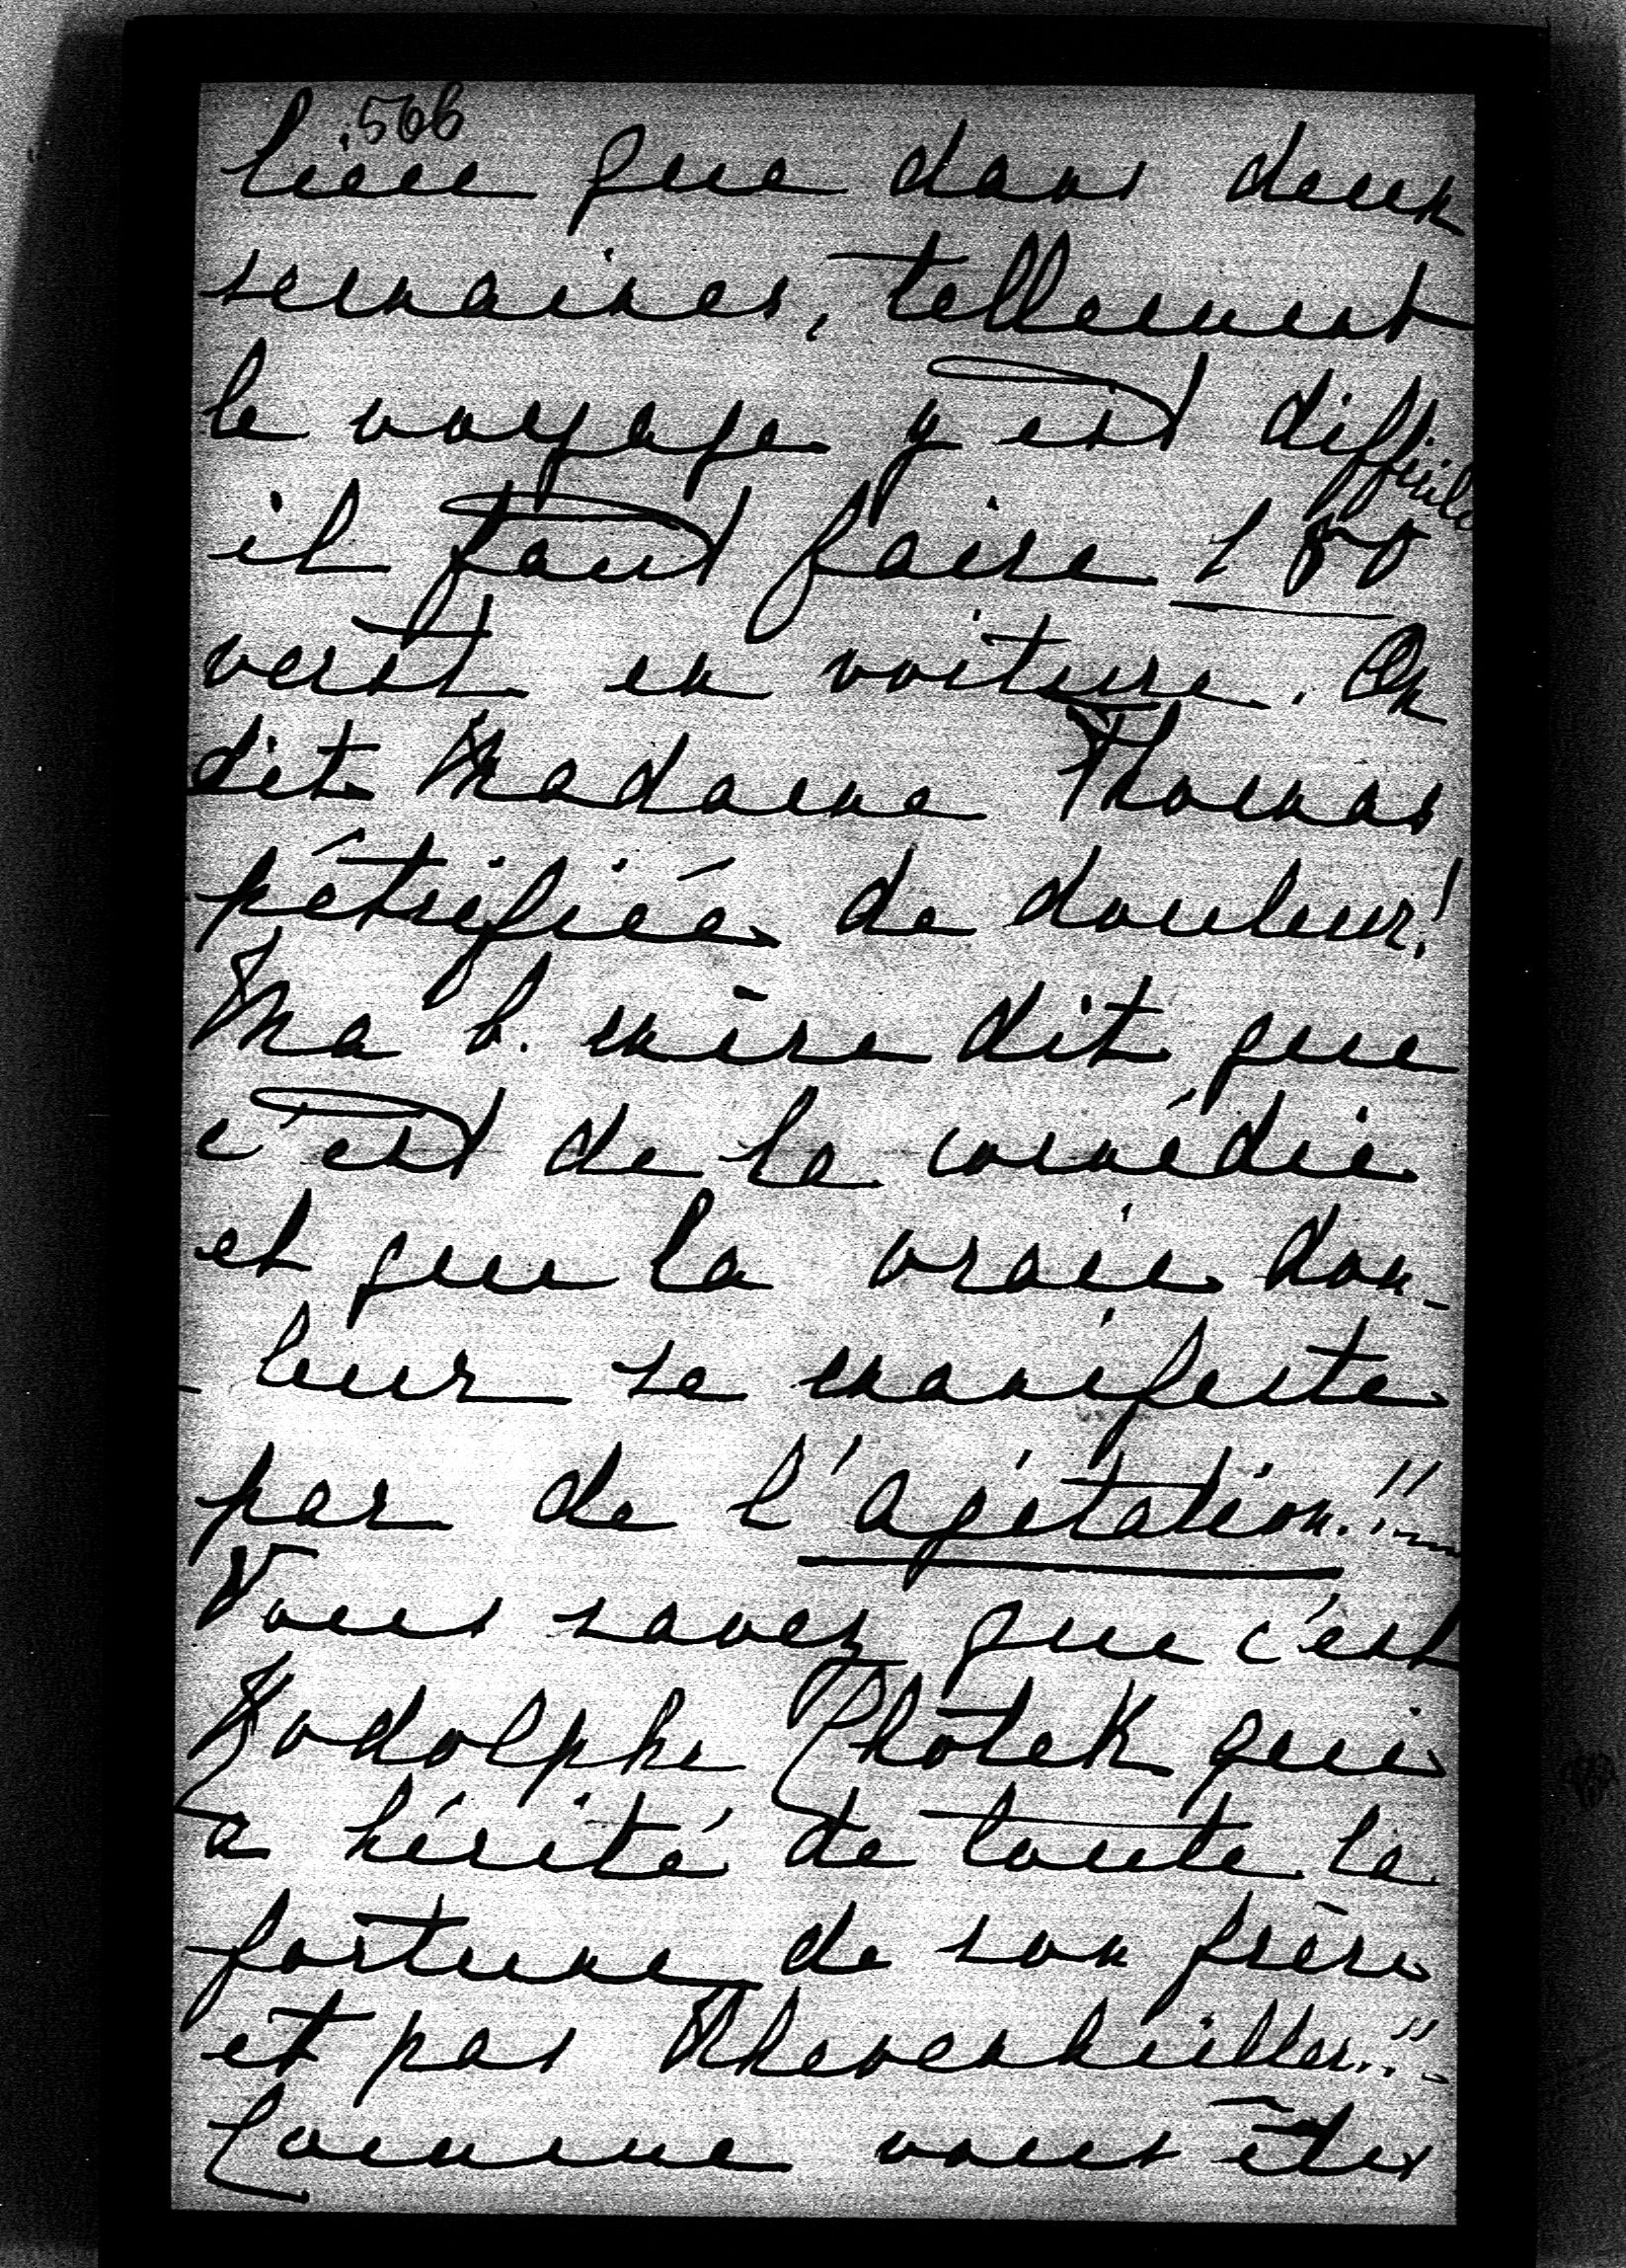 506
lieu que dans deux
semaines, tellement
le voyage y est difficile
il faut faire 180
verst en voiture. On
dit Madame Thomas
pétrifiée de douleur!
Ma b. mère dit que
c'est de la comédie
et que la vraie dou-
-leur se manifeste
par de l'agitation!!
Vous savez que c'est
Rodolphe Chotek qui
a hérité de toute la
fortune de son frère
et pas Khevenhüller!!
Comme vous êtes